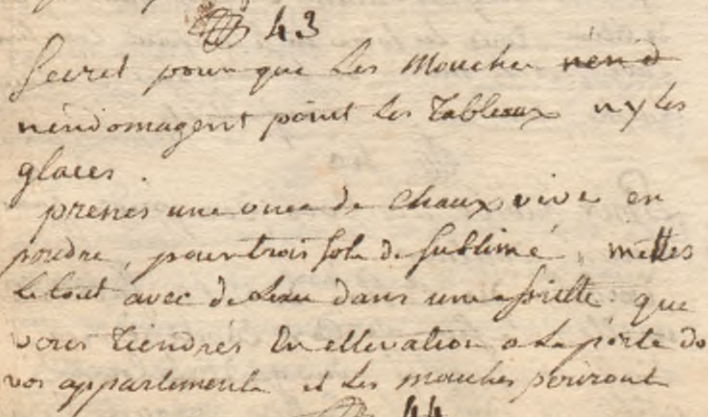 43
Secret pour que Les Mouches nend
nendomagent point Les Tableaux ny les
glaces.
prenés une once de chaux vive en
poudre, pour trois sols de sublimé, mettes
Le tout avec de Leau dans une assiette, que
vous tiendrés En ellevation a La porte de
vos appartements et Les mouches periront
44